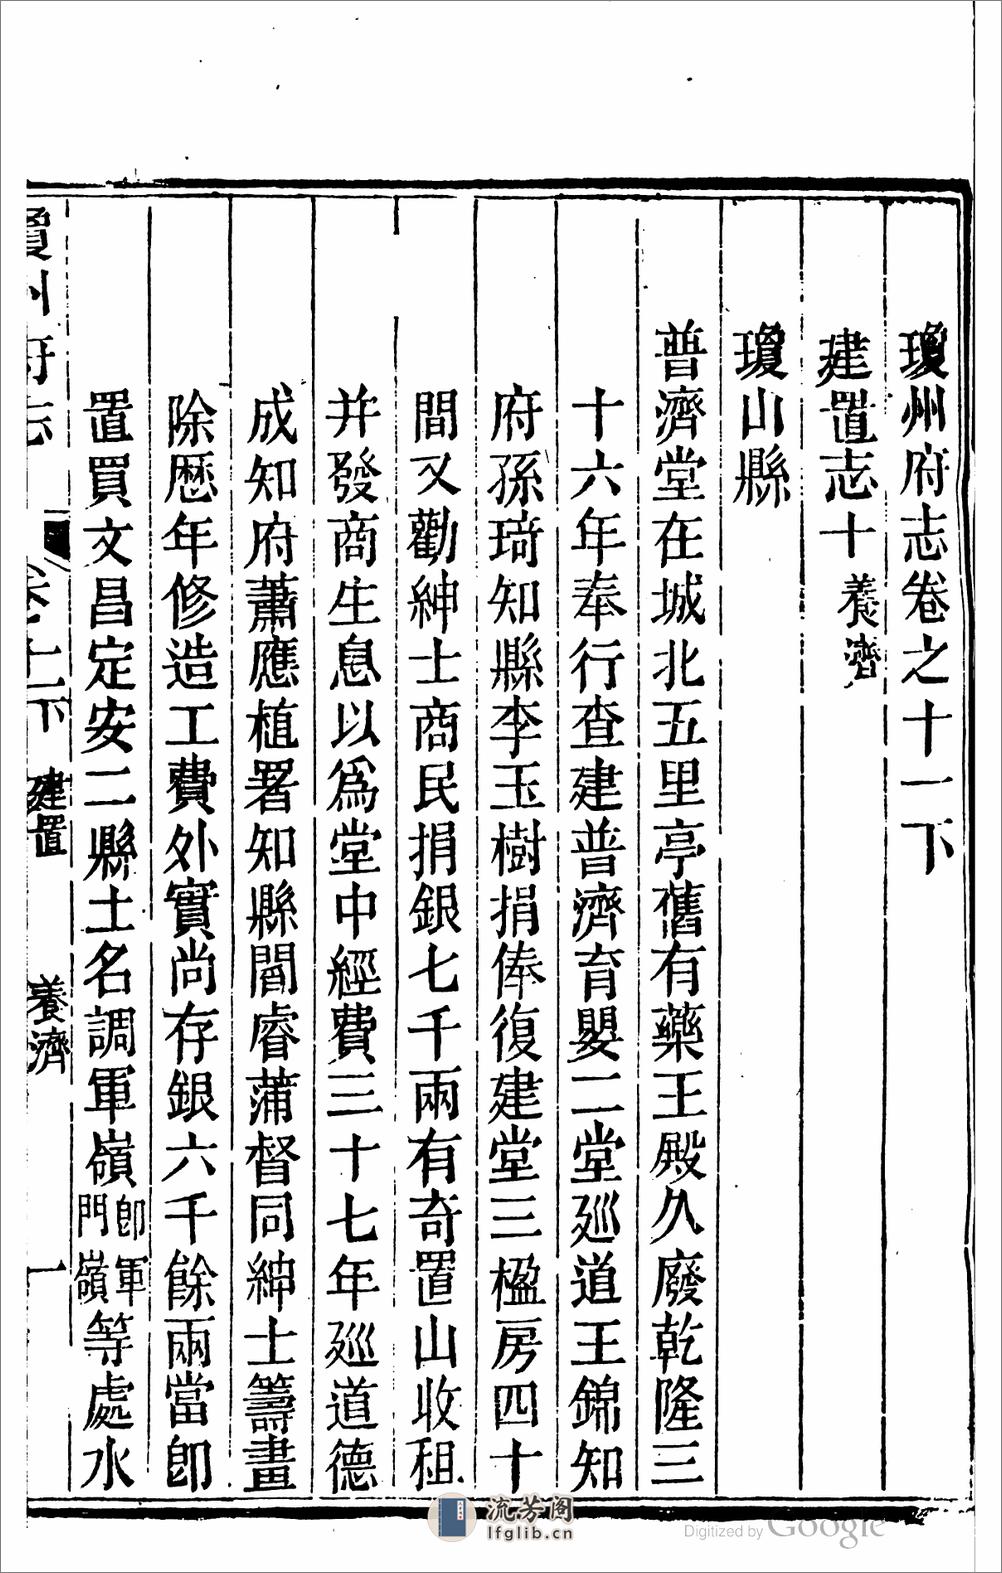 瓊州府志卷之十一下
建置志十養濟
瓊山縣
普濟堂在城北五里亭舊有藥王殿久廢乾隆三
十六年奉行查建普濟育嬰二堂廵道王錦知
府孫琦知縣李玉樹捐俸復建堂三楹房四十
間又勸紳士商民捐銀七千兩有奇置山收租
并發商生息以爲堂中經費三十七年廵道德
成知府蕭應植署知縣閻睿蒲督同紳士籌畫
除歷年修造工費外實尚存銀六千餘兩當卽
置買文昌定安二縣土名調軍嶺卽軍門嶺等處水
瓊州府志 卷十一下 建置 養濟 一
流芳阁
lfglib.cn
Digitized by Google